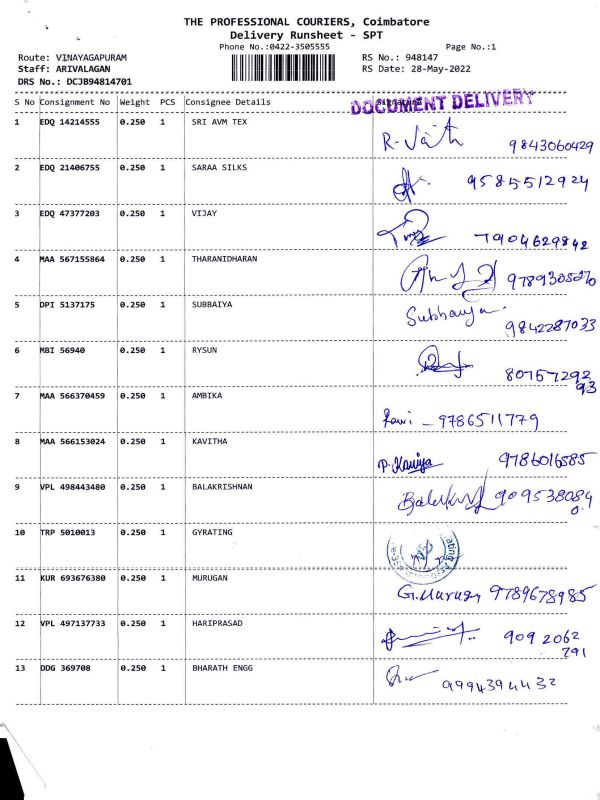 THE PROFESSIONAL COURIERS, Coimbatore
Delivery Runsheet - SPT
Phone No.:0422-3505555 Page No.:1
Route: VINAYAGAPURAM RS No.: 948147
Staff: ARIVALAGAN RS Date: 28-May-2022
DRS No.: DCJB94814701
S No Consignment No Weight PCS Consignee Details
DOCUMENT DELIVERY
1 EDQ 14214555 0.250 1 SRI AVM TEX 9843060429
2 EDQ 21406755 0.250 1 SARAA SILKS 9585512924
3 EDQ 47377203 0.250 1 VIJAY 7904629842
4 MAA 567155864 0.250 1 THARANIDHARAN
5 DPI 5137175 0.250 1 SUBBAIYA 9842287033
6 MBI 56940 0.250 1 RYSUN 80757292
93
7 MAA 566370459 0.250 1 AMBIKA 9786511779
8 MAA 566153024 0.250 1 KAVITHA 9786016585
9 VPL 498443480 0.250 1 BALAKRISHNAN
10 TRP 5010013 0.250 1 GYRATING
11 KUR 693676380 0.250 1 MURUGAN G.Murugan 9789678985
12 VPL 497137733 0.250 1 HARIPRASAD 9092062
791
13 DDG 369708 0.250 1 BHARATH ENGG 9994394432